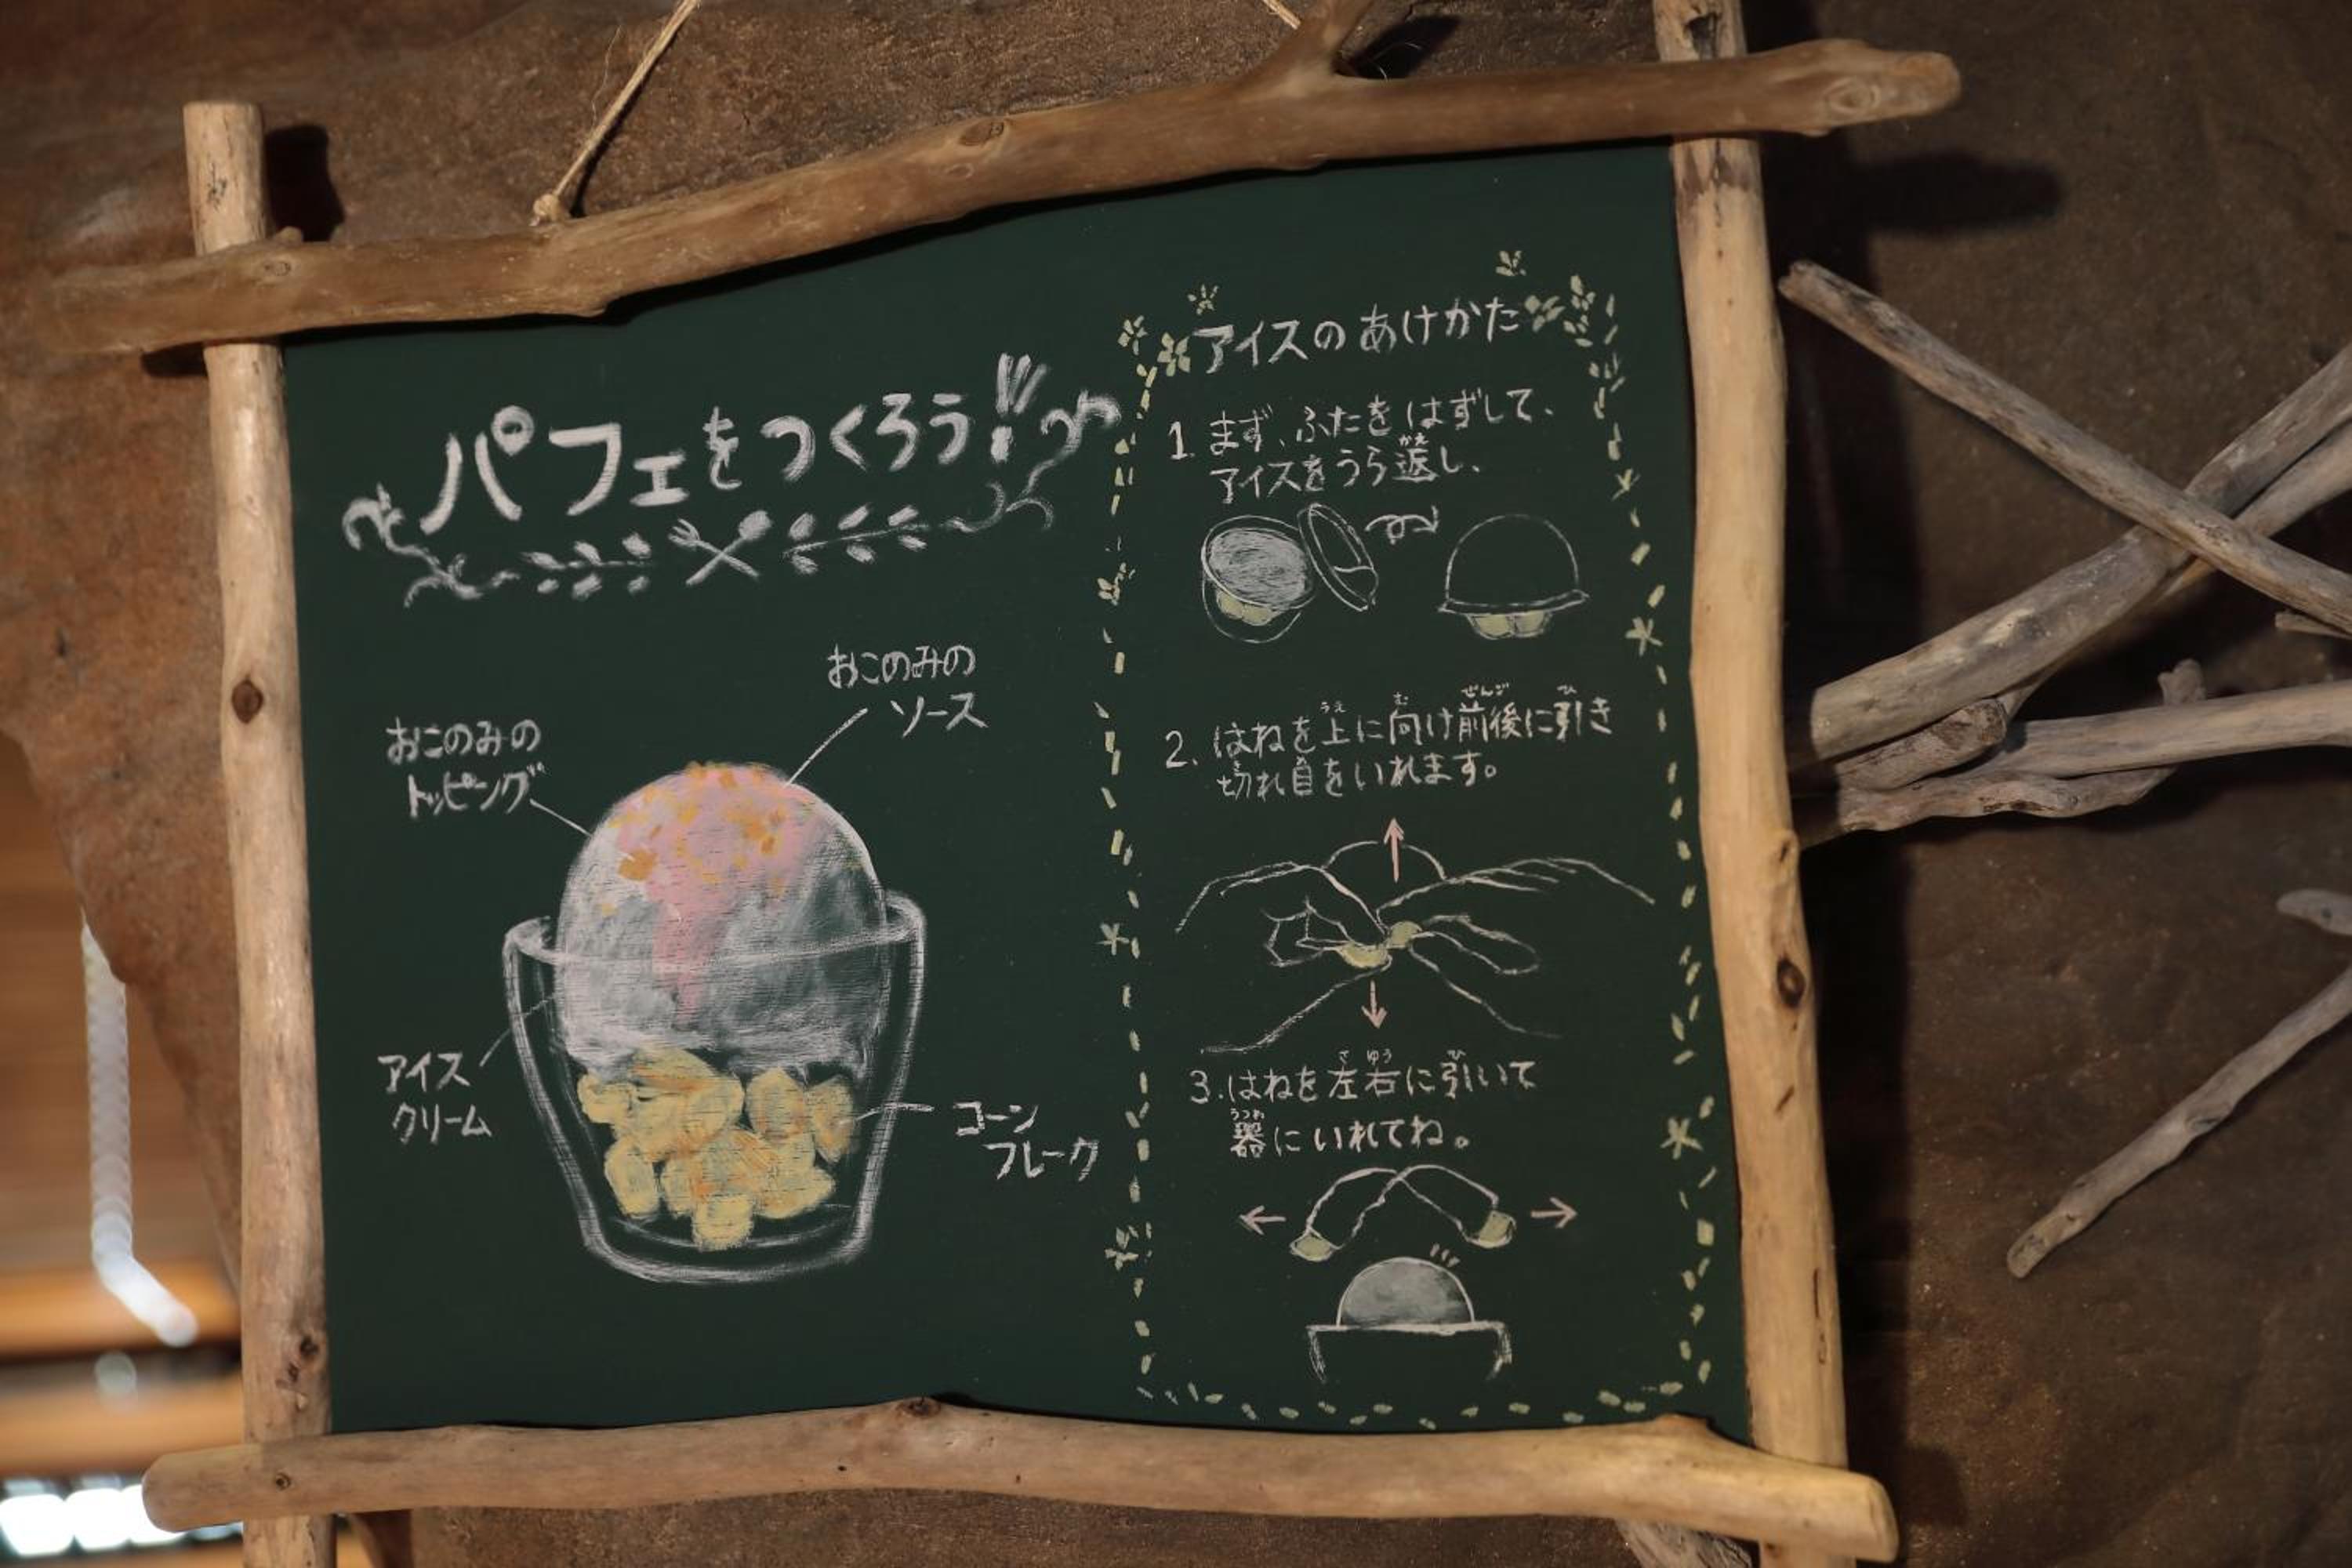 パフェをつくろう!!
おこのみの
ソース
おこのみの
トッピング
アイス
クリーム
コーン
フレーク
アイスのあけかた
1. まず、ふたをはずして、
アイスをうら返し、
かえ
2. はねを上に向け前後に引き
うえ む ぜんご ひ
切れ目をいれます。
き め
3. はねを左右に引いて
さ ゆう ひ
器にいれてね。
うつわ